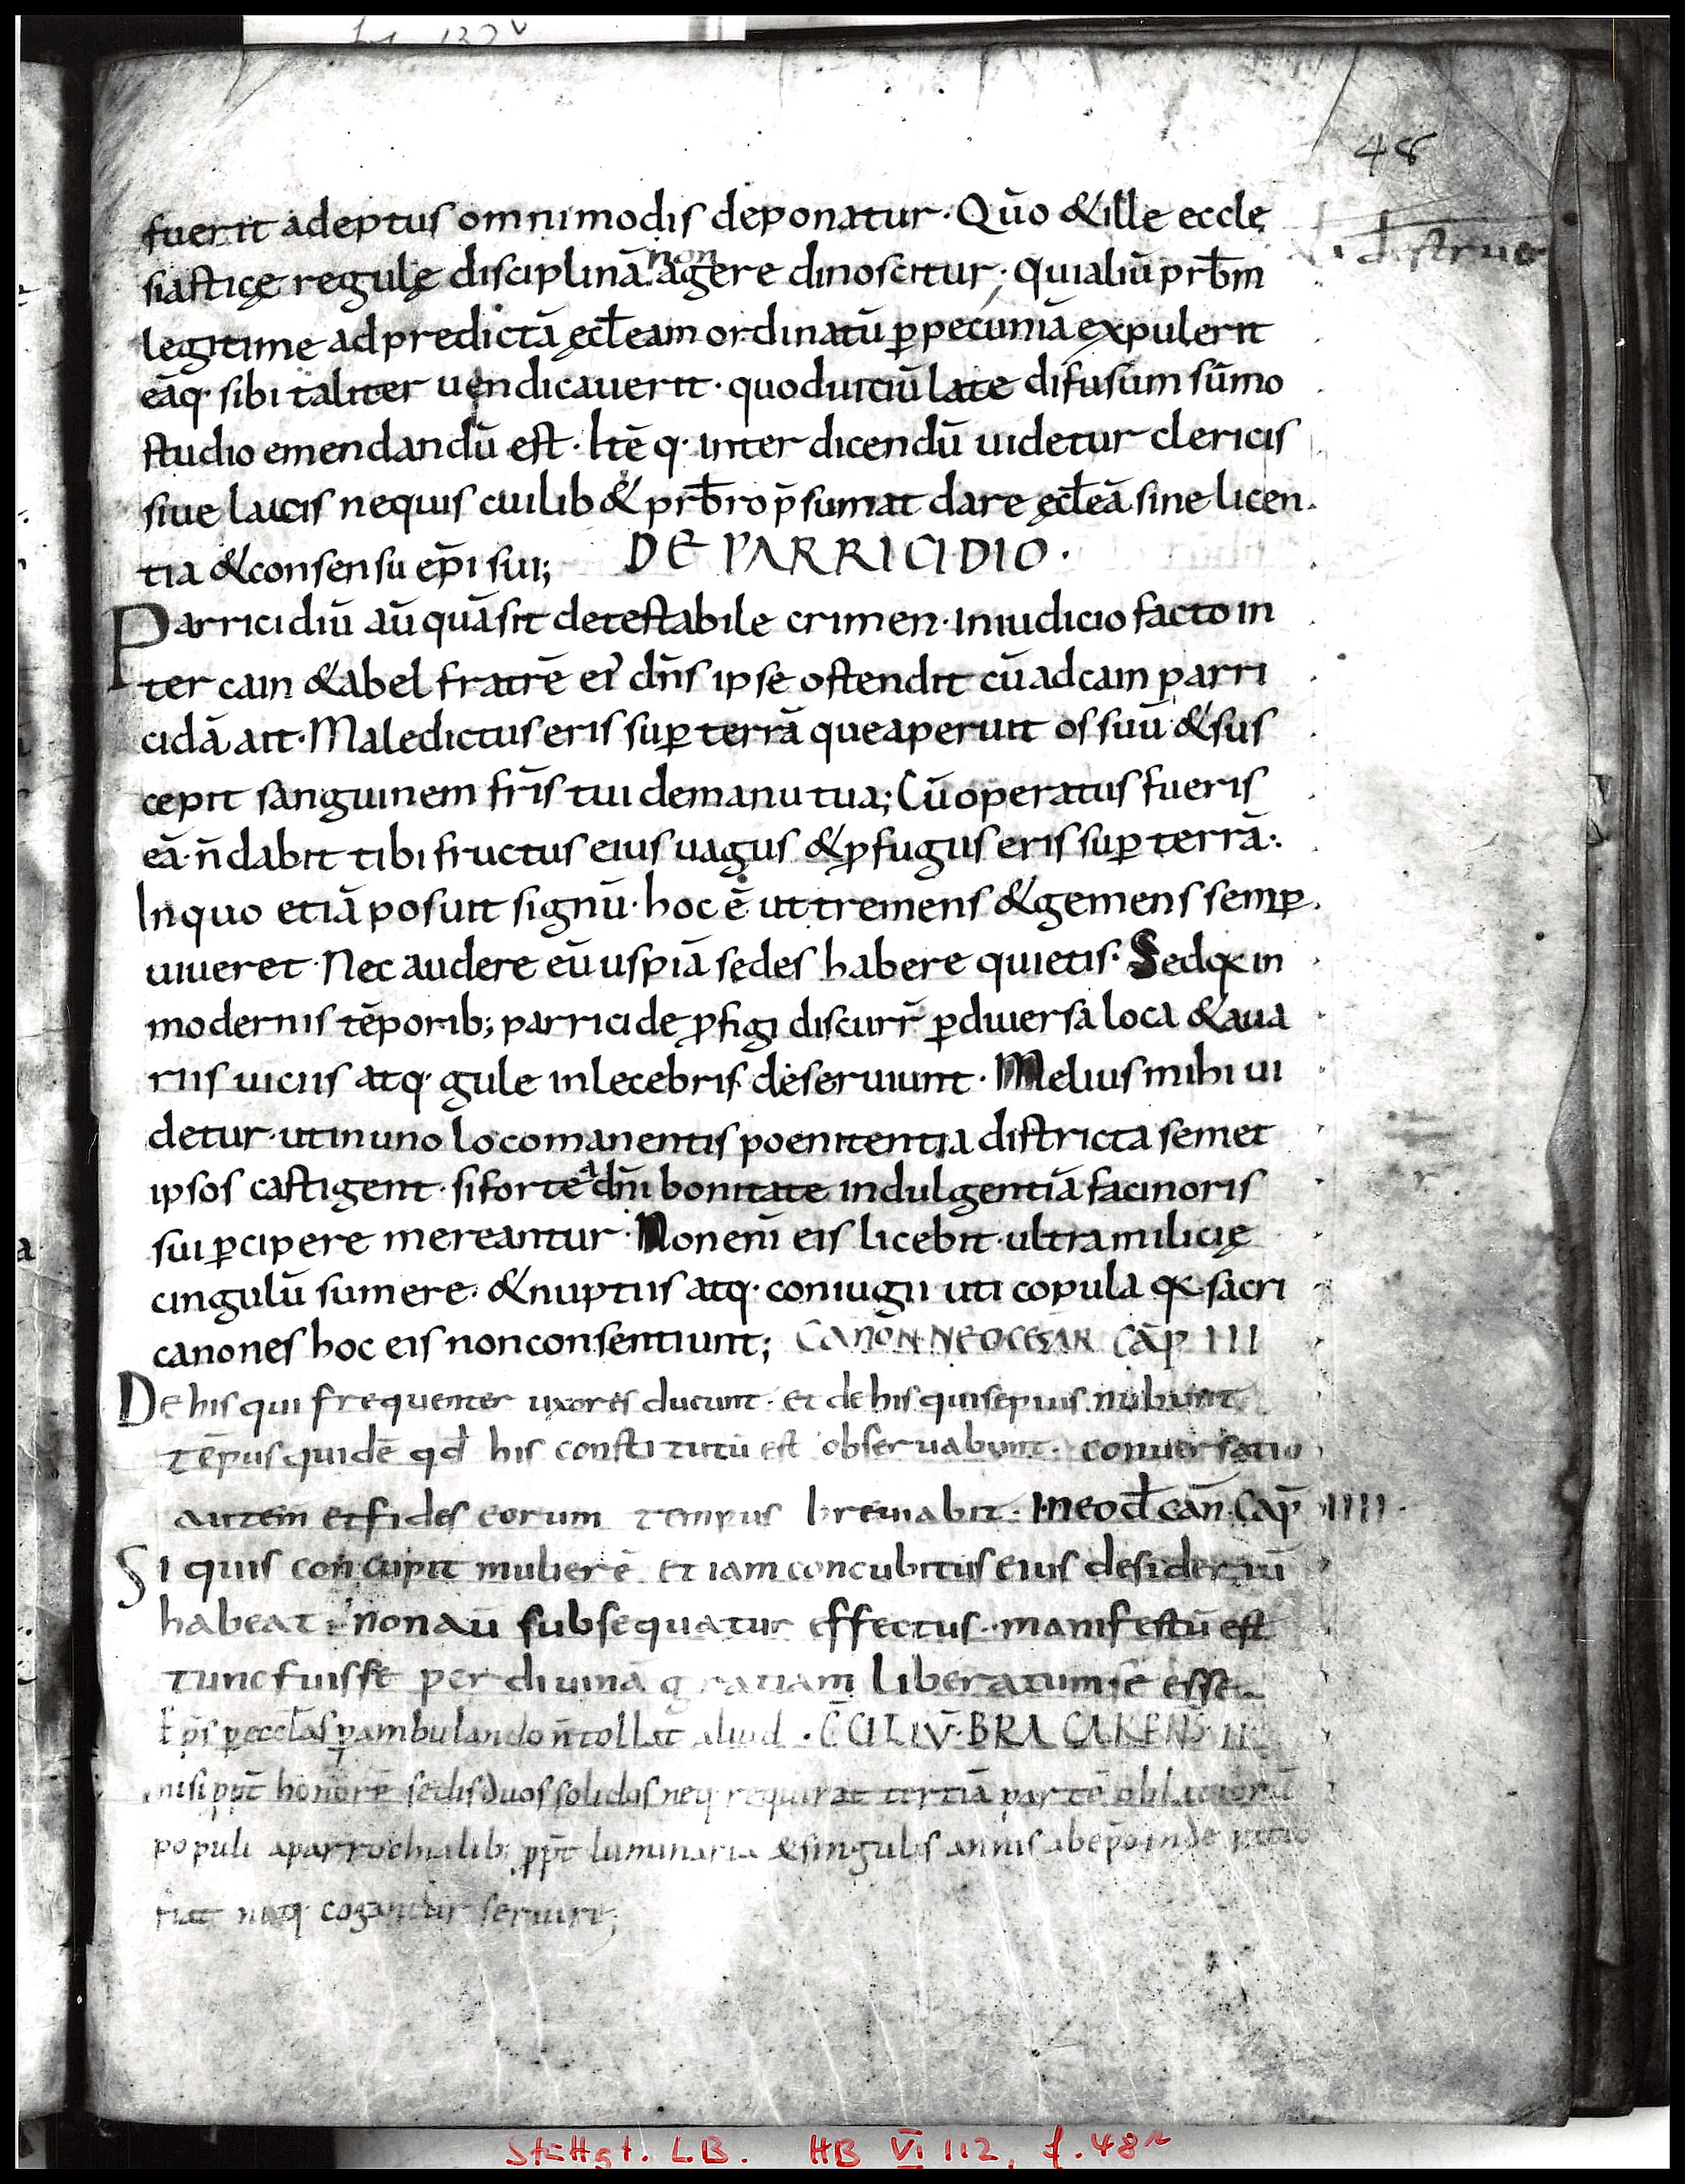 48
fuerit adeptus omnimodis deponatur· Qūo & ille eccle
siasticę regulę disciplinā non agere dinoscitur; qui aliū prb̄m
legitime ad predictā ęcl̄eam ordinatū ꝑ pecuniā expulerit
eāq· sibi taliter uendicauerit· quod uiciū late difusum sūmo
studio emendandū est· Itē q· inter dicendū uidetur clericis
siue laicis nequis cuilib& prb̄ro p̄sumat dare ęcl̄eā sine licen
tia & consensu ep̄i sui; DE PARRICIDIO·
Parricidiū aū quā sit detestabile crimen· In iudicio facto in
ter cain & abel fratrē ei' dn̄s ipse ostendit cū ad cain parri
cidā ait· Maledictus eris suꝑ terrā que aperuit os suū & sus
cepit sanguinem fr̄is tui de manu tua; Cū operatus fueris
eā· n̄ dabit tibi fructus eius uagus & ꝓfugus eris suꝑ terrā·
In quo etiā posuit signū· hoc ē ut tremens & gemens semꝑ
uiueret· Nec audere eū uspiā sedes habere quietis· Sed q in
modernis tēporib; parricide ꝓfigi discurr̄ ꝑ diuersa loca & aua
riis uiciis atq· gule inlecebris deseruiunt· Melius mihi ui
detur· ut in uno loco manentis poenitentia districta semet
ipsos castigent· si forte a dn̄i bonitate indulgentiā facinoris
sui ꝑcipere mereantur· Non enī eis licebit· ultra milicię
cingulū sumere· & nuptiis atq· coniugii uti copula q sacri
canones hoc eis non consentiunt; CANON· NEOCESAR CAP̄ III
De his qui frequenter uxores ducunt· et de his qui sepius nubunt
Tēpus quidē qd̄ his constitutū est obseruabunt· conuersatio
autem et fides eorum tempus breuiabit· In eod̄ can̄· Cap̄ IIII·
Si quis concupit mulierē et iam concubitus eius desideriū
habeat· non aū subsequatur effectus· manifestū est
tunc fuisse per diuinā gratiam liberatum se esse
Ep̄s ꝑ eccl̄as ꝑambulando n̄ tollat aliud· C̄CILIV̄· BRACARENS II
nisi pp̄t honorē sedis duos solidos neq requirat tertiā partē oblationū
populi a parrochialib; pp̄t luminaria & singulis annis ab ep̄o inde ratio
fiat neq cogantur seruire;
Stuttgt. L.B. HB VI 112, f. 48r